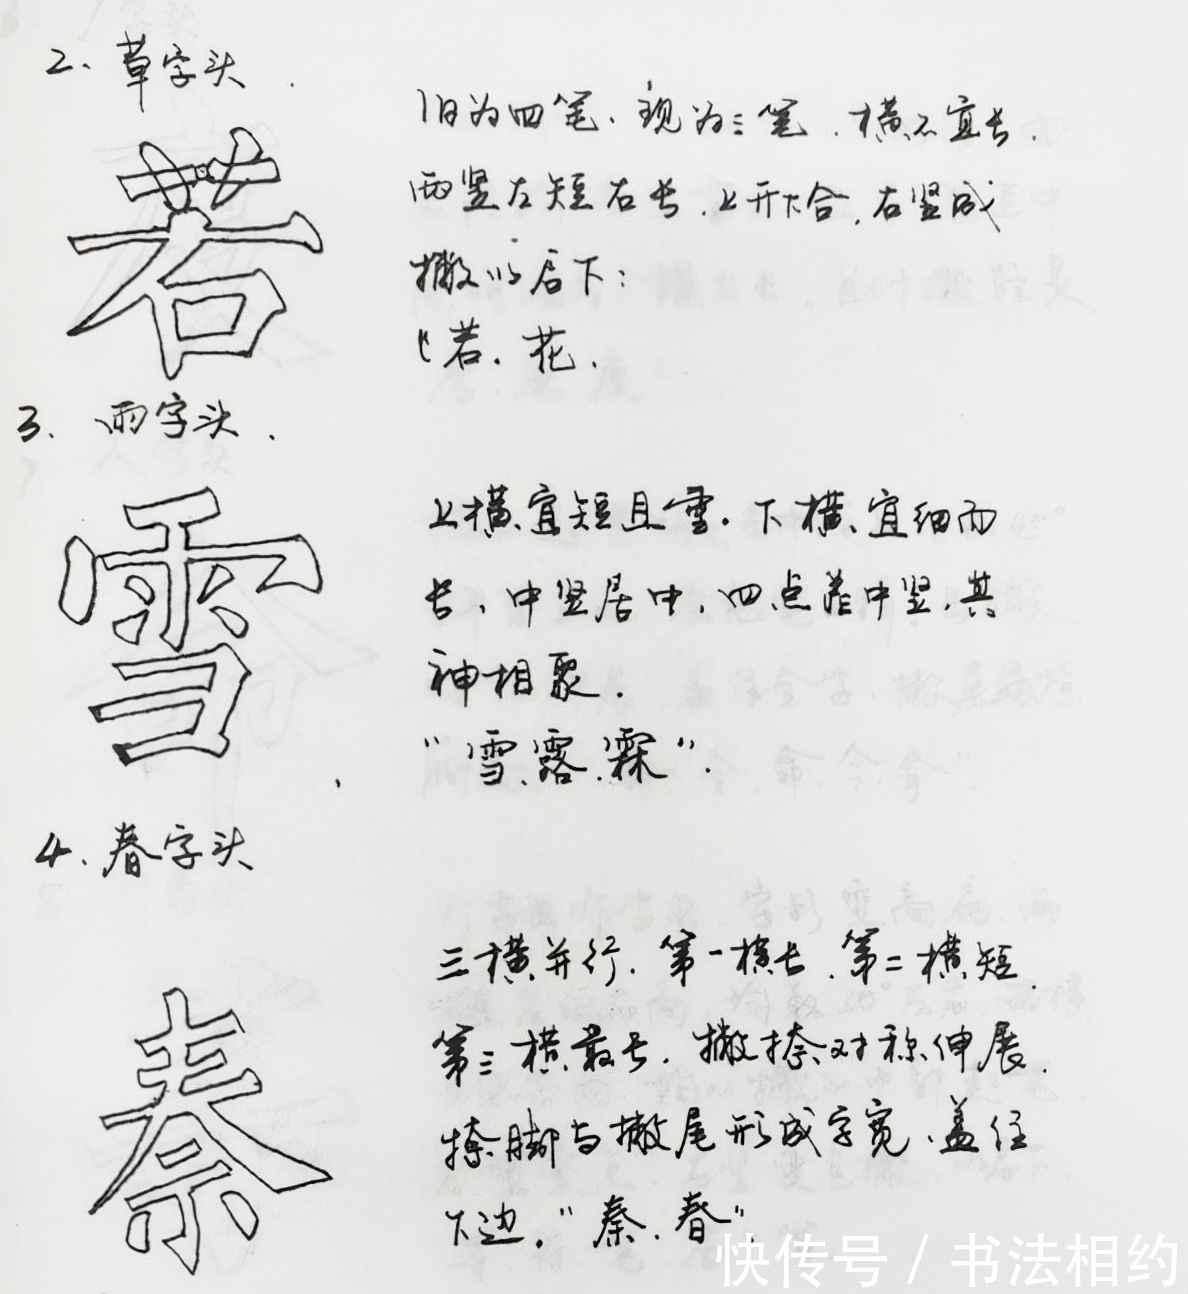 2. 草字头.
若
旧为四笔.现为三笔.横不宜长.
两竖左短右长.上开下合.右竖成
撇以后下:
"若.花.
3. 雨字头.
雪
上横宜短且重.下横宜细而
长.中竖居中.四点靠中竖.其
神相聚.
"雪.露.霖".
4. 春字头
秦
三横并行.第一横长.第二横短.
第三横最长.撇捺对称伸展.
捺脚与撇尾形成字宽.盖住
下边."秦.春".
快传号/书法相约